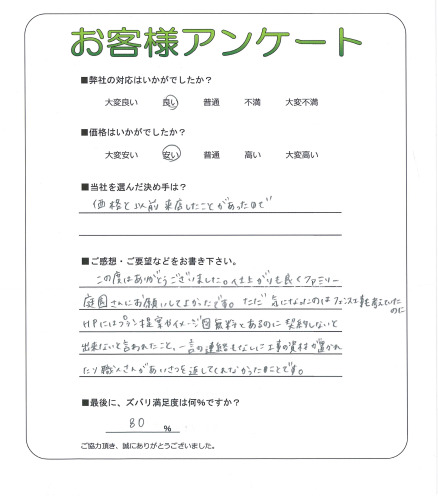 お客様アンケート
■弊社の対応はいかがでしたか?
大変良い 良い 普通 不満 大変不満
■価格はいかがでしたか?
大変安い 安い 普通 高い 大変高い
■当社を選んだ決め手は?
価格と以前来店したことがあったので
■ご感想・ご要望などをお書き下さい。
この度はありがとうございました。仕上がりも良くファミリー
庭園さんにお願いしてよかったです。ただ気になったのはフェンス工事も考えていた
のに
HPにはプラン提案やイメージ図無料とあるのに契約しないと
出来ないと言われたこと、一言の連絡もなしに工事の資材が置かれ
たり職人さんがあいさつを返してくれなかったことです。
■最後に、ズバリ満足度は何%ですか?
80 %
ご協力頂き、誠にありがとうございました。